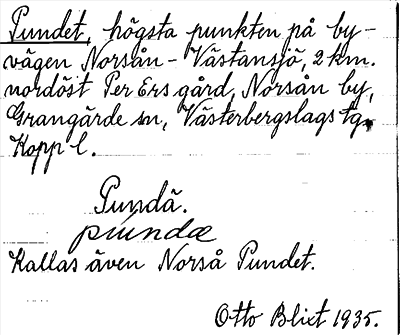 Pundet, högsta punkten på by-
vägen Norsån - Västansjö, 2 km.
nordöst Per Ers gård, Norsån by,
Grangärde sn, Västerbergslags tg.
Kopp l.
Pundä.
pundæ
Kallas även Norså Pundet.
Otto Blixt 1935.